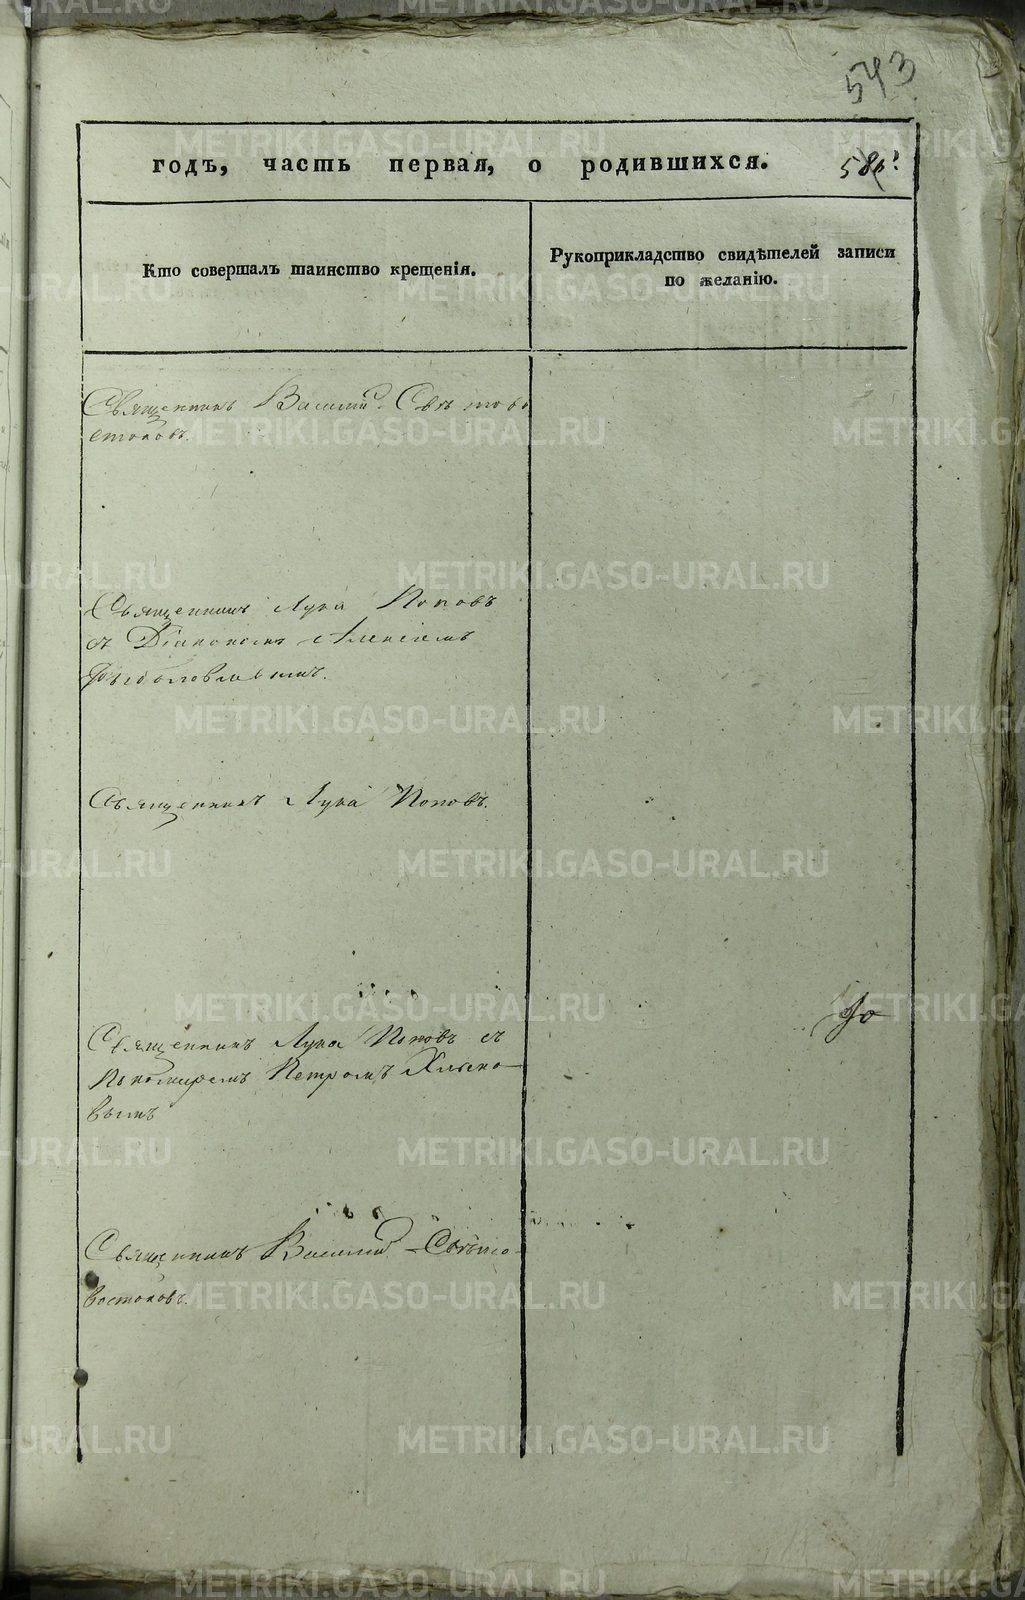 543
годъ, часть первая, о родившихся.
Кто совершалъ таинство крещенія.
Рукоприкладство свидѣтелей записи
по желанію.
Священникъ Василій Свѣтово
стоковъ.
Священникъ Лука Поповъ
съ Діакономъ Алексіемъ
Священникъ Лука Поповъ.
Священникъ Лука Поповъ съ
Пономаремъ Петромъ Хлыно-
вымъ
Священникъ Василій Свѣто-
востоковъ.
METRIKI.GASO-URAL.RU